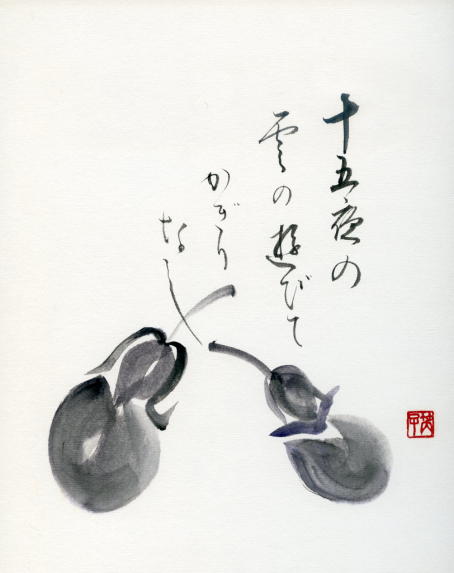 十五夜の
雲の遊びて
かぎり
なし